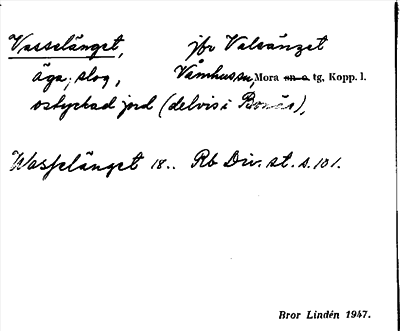 Vasselänget, jfr Valsänget
äga, slog, Våmhussn, Mora sn o tg, Kopp. l.
ostyckad jord (delvis i Bonäs),
Wasselänget 18.. Rb Div. st. s. 101.
Bror Lindén 1947.